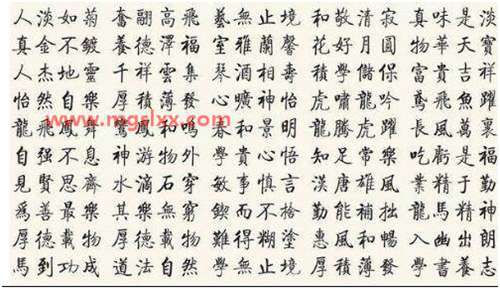 人淡如菊 奮翮高飛 藝無止境 和敬清寂 真味是淡
真金不鍍 養德澤福 室雅蘭馨 花好月圓 物華天寶
人杰地靈 千祥雲集 琴酒相壽 積學儲保 富貴吉祥
怡然自樂 厚積薄發 心曠神怡 虎嘯龍吟 鳶飛魚躍
龍飛鳳舞 鸞鳳和鳴 春和景明 龍騰虎躍 長風萬裏
www.mgslxx.com
自强不息 神游物外 學貴心悟 知足常樂 吃虧是福
見賢思齊 水滴石穿 敏事慎言 漢唐雄風 業精于勤
爲善最樂 其樂無窮 鍥而不捨 勤能補拙 龍馬精神
厚德載物 厚德載物 難得糊塗 惠風和暢 入幽出朗
馬到功成 道法自然 學無止境 厚積薄發 學書養志